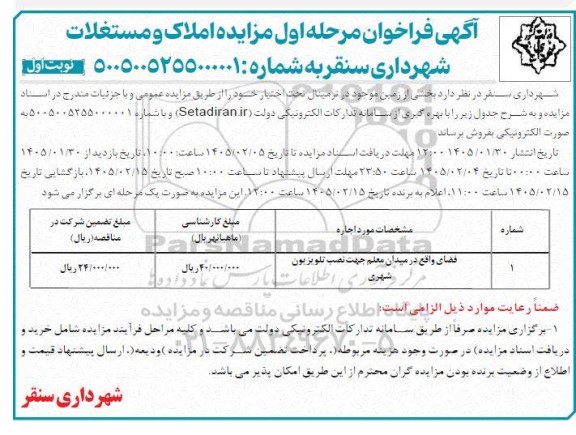 آگهی فراخوان مرحله اول مزایده املاک و مستغلات
شهرداری سنقر به شماره: ۵۰۰۵۰۰۵۲۵۵۰۰۰۰۰۱
نوبت اول
شهرداری سنقر در نظر دارد بخشی از زمین موجود در ترمینال تحت اختیار خود را از طریق مزایده عمومی و با جزئیات مندرج در اسناد
مزایده و به شرح جدول زیر را با بهره گیری از سامانه تدارکات الکترونیکی دولت (Setadiran.ir) و با شماره ۵۰۰۵۰۰۵۲۵۵۰۰۰۰۰۱ به
صورت الکترونیکی بفروش برساند
تاریخ انتشار ۱۴۰۵/۰۱/۳۰ ۱۲:۰۰ مهلت دریافت اسناد مزایده تا تاریخ ۱۴۰۵/۰۲/۰۵ ساعت: ۱۰:۰۰، تاریخ بازدید از ۱۴۰۵/۰۱/۳۰
ساعت ۰۰:۰۰ تا تاریخ ۱۴۰۵/۰۲/۰۴ ساعت ۲۳:۵۰ مهلت ارسال پیشنهاد تا ساعت ۱۰:۰۰ صبح تاریخ ۱۴۰۵/۰۲/۱۵، بازگشایی تاریخ
۱۴۰۵/۰۲/۱۵ ساعت ۱۱:۰۰، اعلام به برنده تاریخ ۱۴۰۵/۰۲/۱۵ ساعت ۱۲:۰۰. این مزایده به صورت یک مرحله ای برگزار می شود
شماره
مشخصات مورد اجاره
مبلغ کارشناسی
(ماهیانه ریال)
مبلغ تضمین شرکت در
مناقصه (ریال)
۱
فضای واقع در میدان معلم جهت نصب تلویزیون
شهری
۴۰/۰۰۰/۰۰۰ ریال
۲۴/۰۰۰/۰۰۰ ریال
ParsNamadData
مرکز فرآوری اطلاعات پارس نماد داده ها
پایگاه اطلاع رسانی مناقصه و مزایده
۰۲۱-۸۸۳۴۹۶۷۰-۵
ضمناً رعایت موارد ذیل الزامی است:
۱-برگزاری مزایده صرفاً از طریق سامانه تدارکات الکترونیکی دولت می باشد و کلیه مراحل فرآیند مزایده شامل خرید و
دریافت اسناد مزایده) در صورت وجود هزینه مربوطه(، پرداخت تضمین شرکت در مزایده )ودیعه(، ارسال پیشنهاد قیمت و
اطلاع از وضعیت برنده بودن مزایده گران محترم از این طریق امکان پذیر می باشد.
شهرداری سنقر